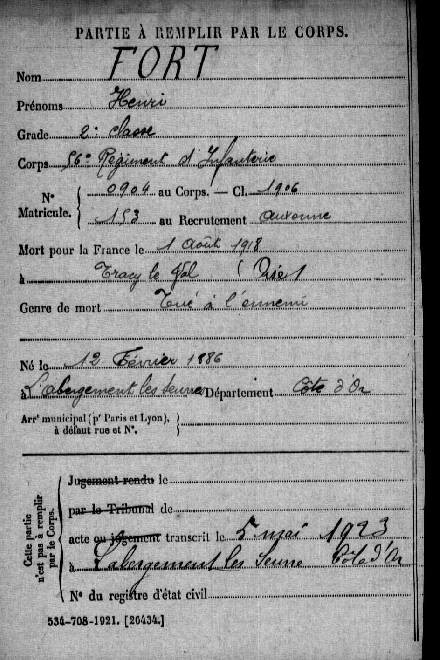 PARTIE À REMPLIR PAR LE CORPS.
Nom FORT
Prénoms Henri
Grade 2e classe
Corps 56e Régiment d'Infanterie
N° Matricule. 0904 au Corps. — Cl. 1906
153 au Recrutement Auxonne
Mort pour la France le 1 Août 1918
à Tracy le Val (
Genre de mort Tué à l'ennemi
Né le 12 Février 1886
à Labergement les Seurre Département Côte d'Or
Arrt municipal (pr Paris et Lyon),
à défaut rue et N°.
Cette partie n'est pas à remplir par le Corps.
Jugement rendu le
par le Tribunal de
acte ou jugement transcrit le 5 mai 1923
à Labergement les Seurre Côte d'Or
N° du registre d'état civil
534-708-1921. [26434.]